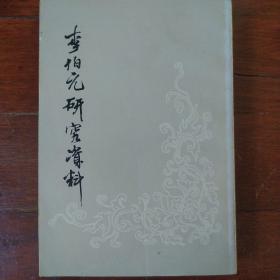 李伯元研究资料